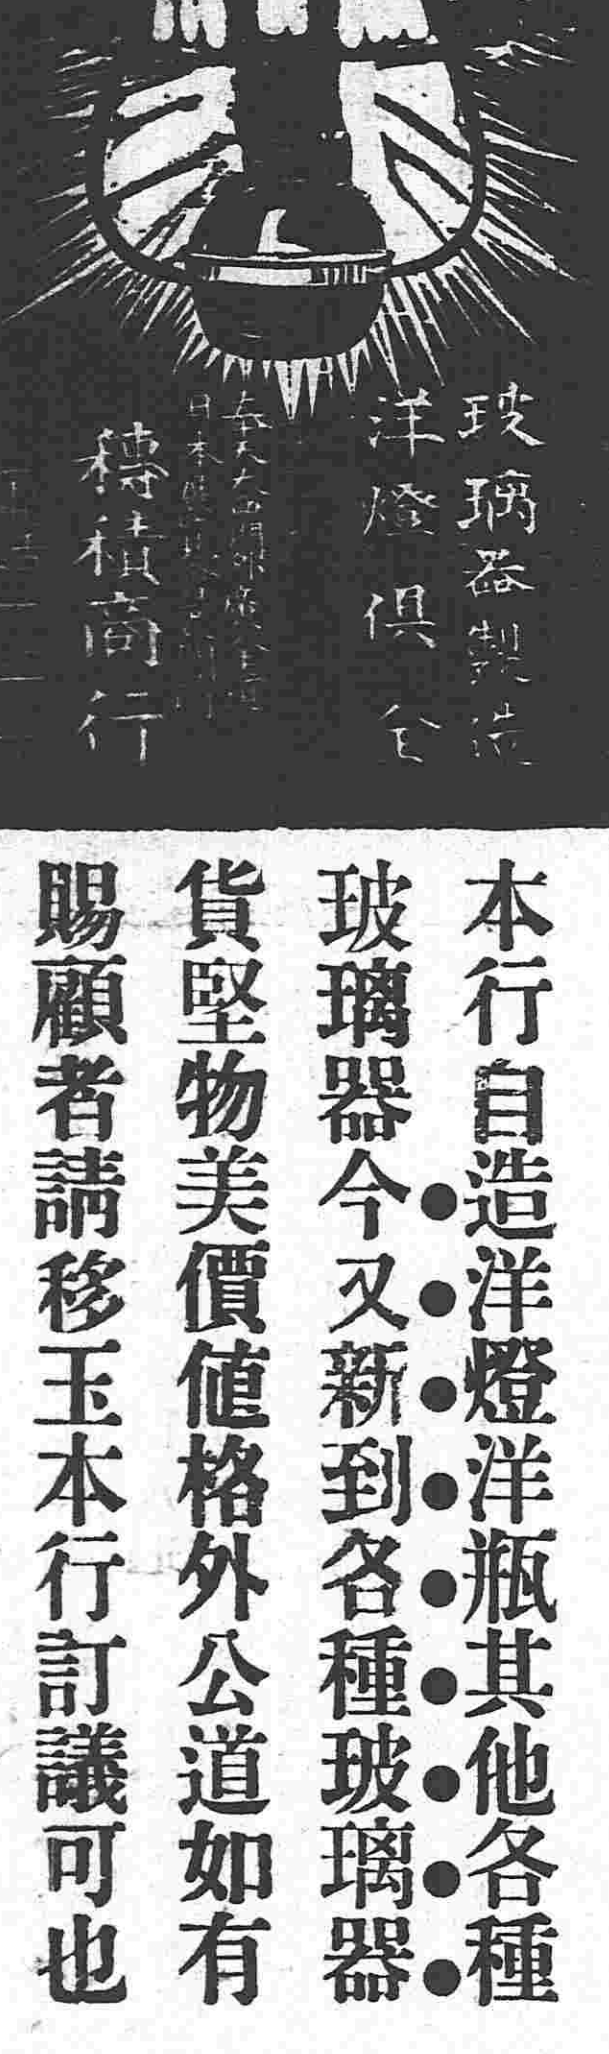 玻璃器製造
洋燈俱全
奉天大西関外
日本
磚積商行
本行自造洋燈洋瓶其他各種
玻璃器今又新到各種玻璃器
貨堅物美價値格外公道如有
賜顧者請移玉本行訂議可也